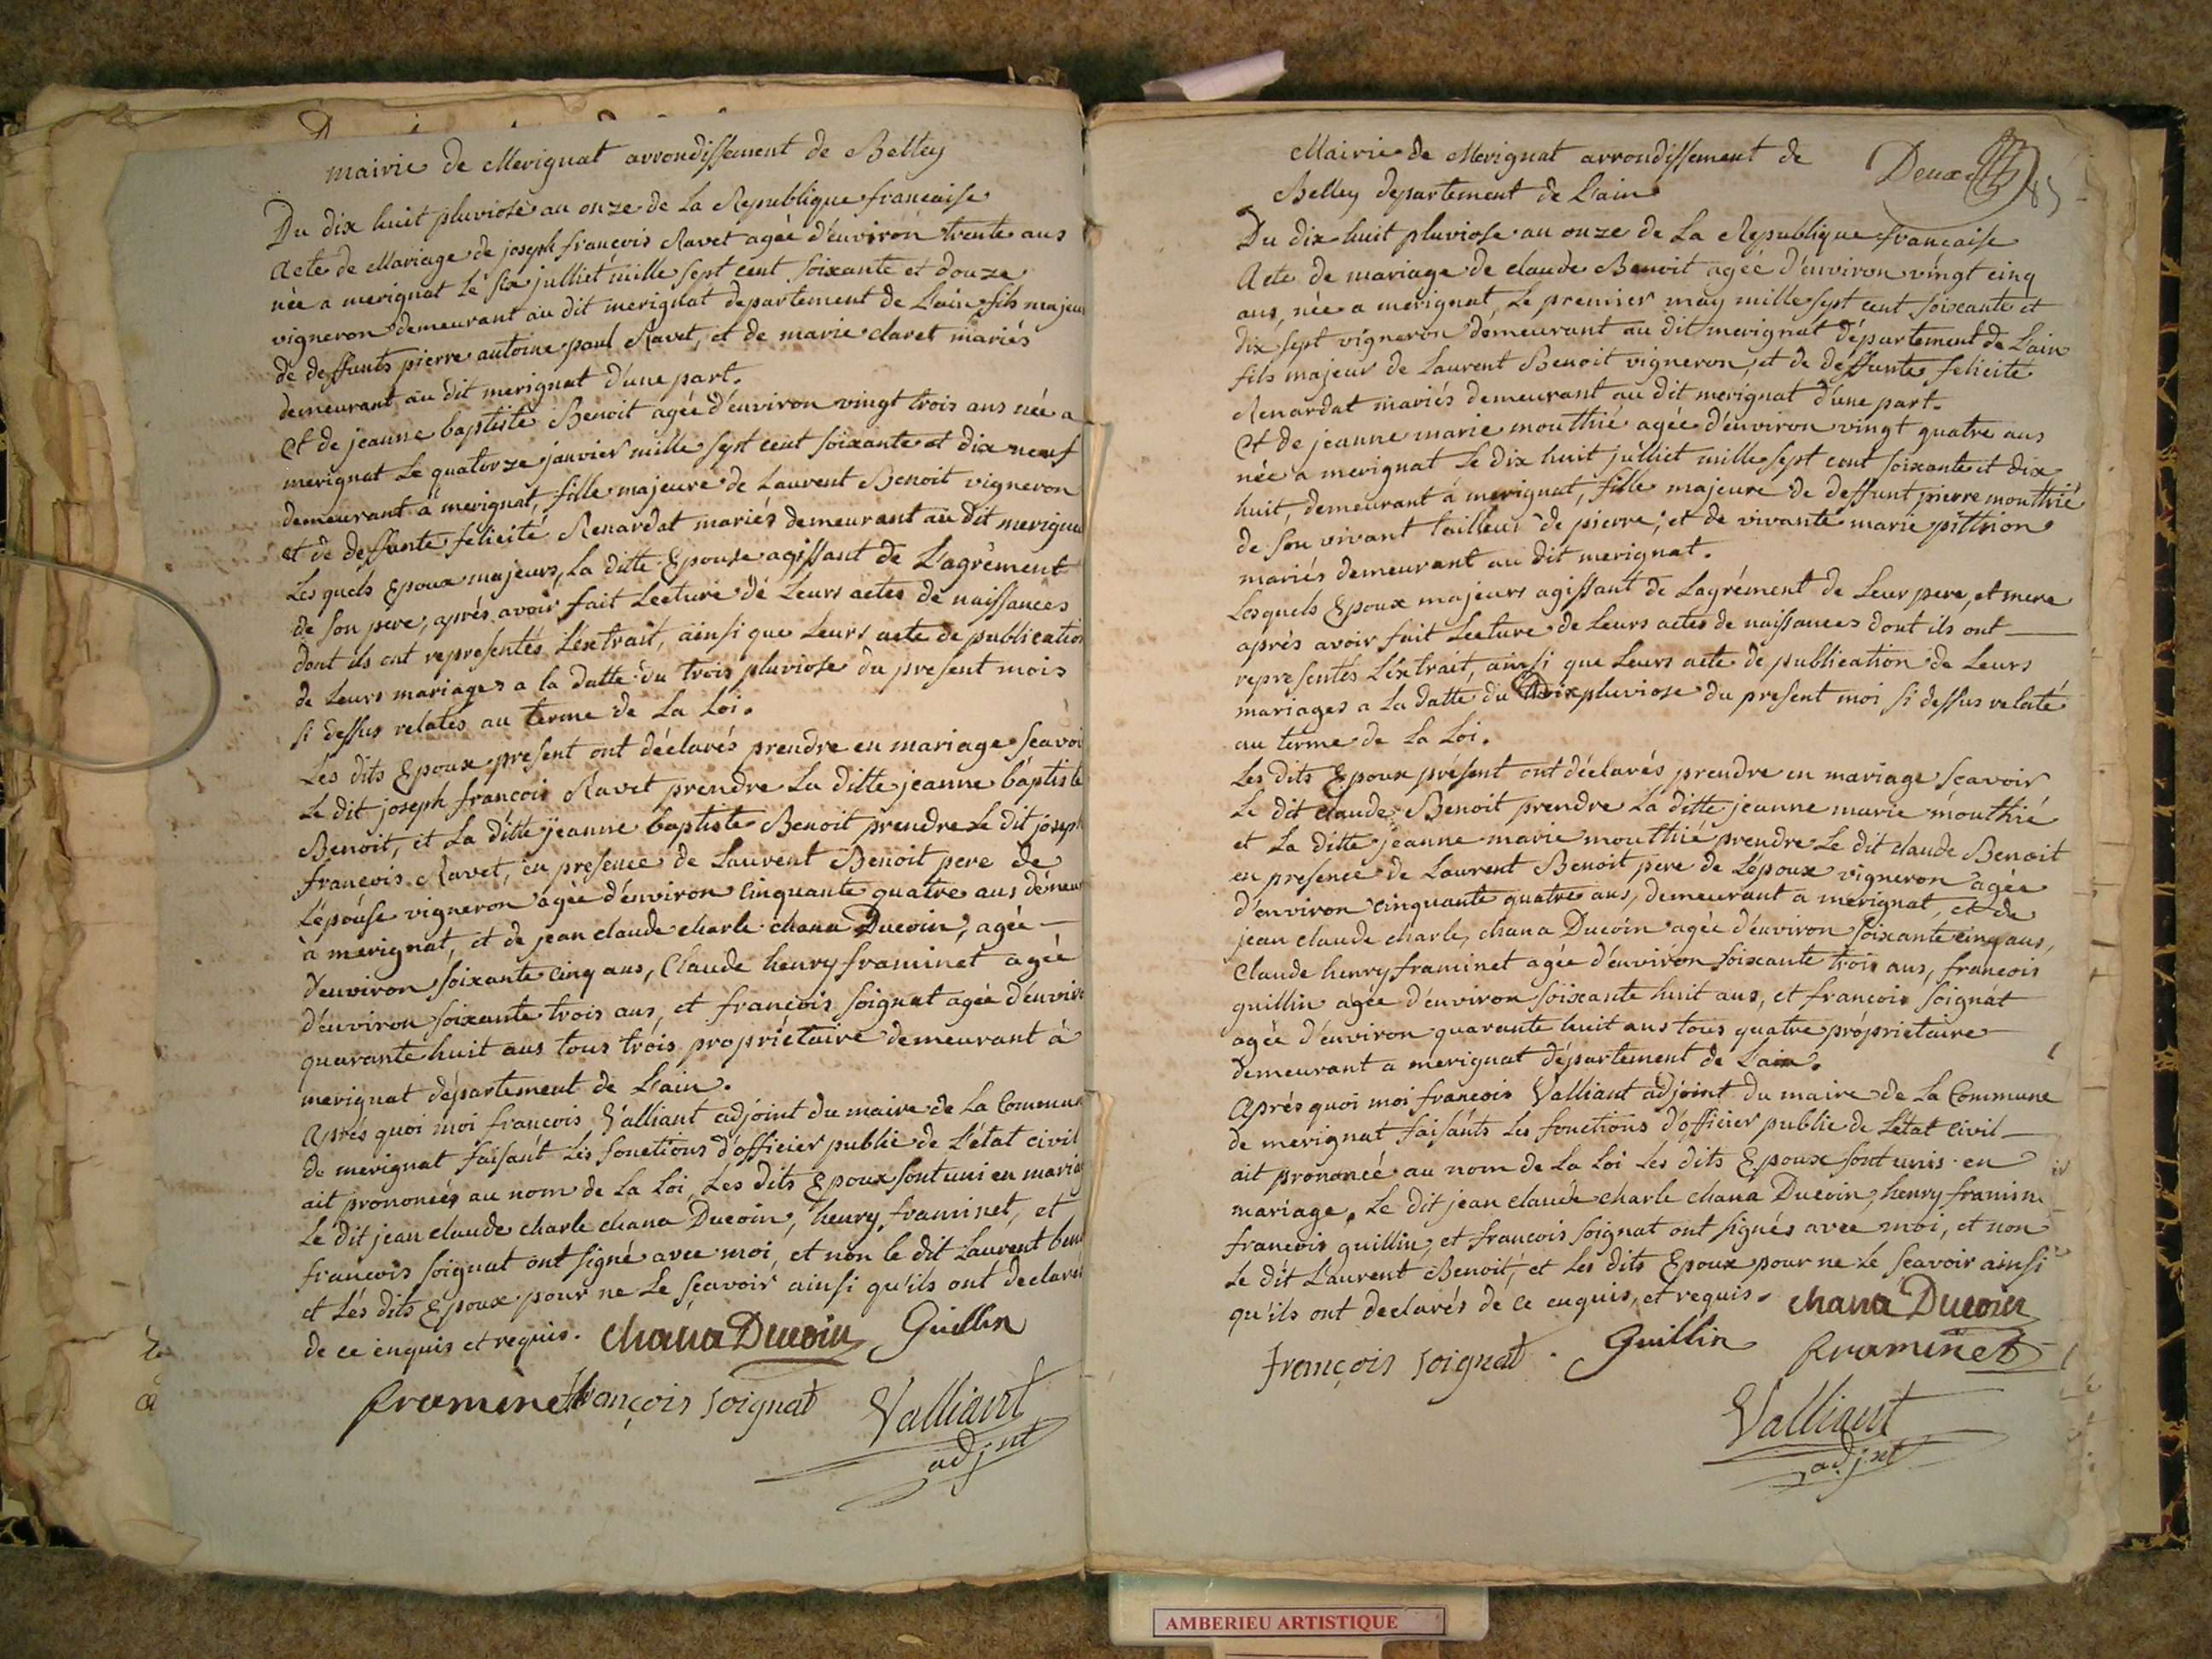 mairie de Merignat arrondissement de Belley
Du dix huit pluviose an onze de La Republique francaise
Acte de Mariage de joseph françois Ravet agée d'environ trente ans
née a merignat Le six julliet mille sept cent soixante et douze
vigneron demeurant au dit merignat departement de L'ain fils majeur
de deffunts pierre antoine paul Ravet, et de marie claret mariés
demeurant au dit merignat d'une part.
Et de jeanne baptiste Benoit agée d'environ vingt trois ans née a
merignat Le quatorze janvier mille sept cent soixante et dix neuf
demeurant à merignat, fille majeure de Laurent Benoit vigneron
et de deffunte felicité Renardat mariés demeurant au dit merignat
Lesquels Epoux majeurs, La ditte Epouse agissant de L'agrément
de son pere, aprés avoir fait Lecture de Leurs actes de naissances
dont ils ont representés L'extrait, ainsi que Leurs acte de publication
de Leurs mariages a la datte du trois pluviose du present mois
si dessus relatés au terme de La Loi.
Les dits Epoux present ont déclarés prendre en mariage scavoi
Le dit joseph francois Ravet prendre La ditte jeanne baptiste
Benoit, et La ditte jeanne baptiste Benoit prendre Le dit joseph
françois Ravet, en presence de Laurent Benoit pere de
L'épouse vigneron agée d'environ Cinquante quatre ans demeu
à merignat, et de jean claude charle chana Ducoin, agée
d'environ soixante cinq ans, Claude henry framinet agée
d'environ soixante trois ans, et françois soignat agée d'enviro
quarante huit ans tous trois propriétaire demeurant à
merignat département de L'ain.
Aprés quoi moi francois Valliant adjoint du maire de La Commun
de merignat faisant Les fonctions d'officier public de L'état civil
ait prononcés au nom de La Loi, Les dits Epoux sont uni en mariag
Le dit jean claude charle chana Ducoin, henry framinet, et
francois soignat ont signé avec moi, et non le dit Laurent ben
et Les dits Epoux pour ne Le scavoir ainsi qu'ils ont declarés
de ce enquis et requis. Chana Ducoin Guillin
framinet françois soignat Valliant
adjnt
Mairie de Merignat arrondissement de
Deux
Belley departement de L'ain
Du dix huit pluviose an onze de La Republique francaise
Acte de mariage de claude Benoit agée d'environ vingt cinq
ans, née a merignat, Le premier may mille sept cent soixante et
dix sept vigneron demeurant au dit merignat département de L'ain
fils majeur de Laurent Benoit vigneron, et de deffunte felicité
Renardat mariés demeurant au dit merignat d'une part.
Et de jeanne marie mouthié agée d'environ vingt quatre ans
née a merignat Le dix huit julliet mille sept cent soixante et dix
huit, demeurant à merignat, fille majeure de deffunt pierre mouthié
de son vivant tailleur de pierre, et de vivante marie pittion
mariés demeurant au dit merignat.
Lesquels Epoux majeurs agissant de Lagrément de Leur pere, et mere
aprés avoir fait Lecture de Leurs actes de naissances dont ils ont
representés L'extrait, ainsi que Leurs acte de publication de Leurs
mariages a La datte du pluviose du present moi si dessus relaté
au terme de La Loi.
Les dits Epoux présent ont déclarés prendre en mariage scavoir
Le dit claude Benoit prendre La ditte jeanne marie mouthié
et La ditte jeanne marie mouthié prendre Le dit claude Benoit
en presence de Laurent Benoit pere de L'époux vigneron agée
d'environ cinquante quatre ans, demeurant a merignat, et de
jean claude charle, chana Ducoin agée d'environ soixante cinq ans,
Claude henry framinet agée d'environ soixante trois ans, francois
guillin agée d'environ soixante huit ans, et francois soignat
agée d'environ quarante huit ans tous quatre propriétaire
demeurant a merignat département de L'ain.
Aprés quoi moi francois Valliant adjoint du maire de La Commune
de merignat faisants Les fonctions d'officier public de L'état Civil
ait prononcé au nom de La Loi Les dits Epoux sont unis en
mariage, Le dit jean claude charle chana Ducoin, henry framine
francois guillin, et francois soignat ont signés avec moi, et non
Le dit Laurent Benoit, et Les dits Epoux pour ne Le scavoir ainsi
qu'ils ont declarés de ce enquis, et requis. chana Ducoin
françois soignat. Guillin framinet
Valliant
adjnt
AMBERIEU ARTISTIQUE